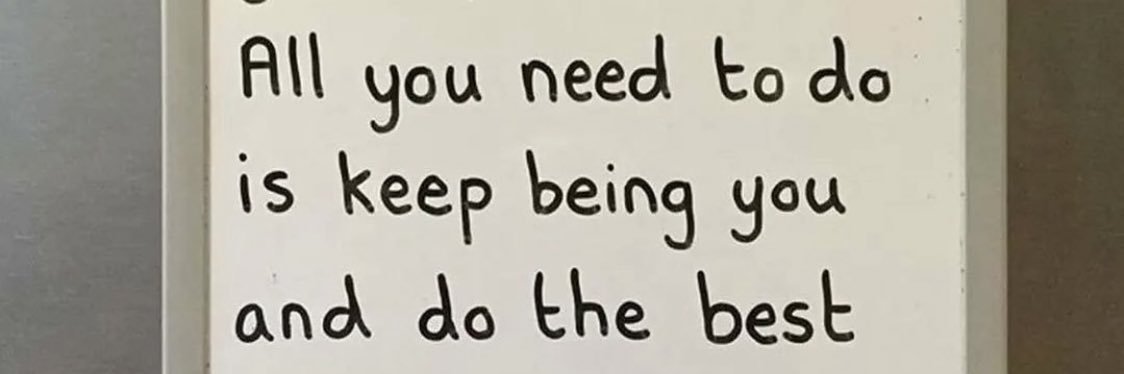 All you need to do
is keep being you
and do the best